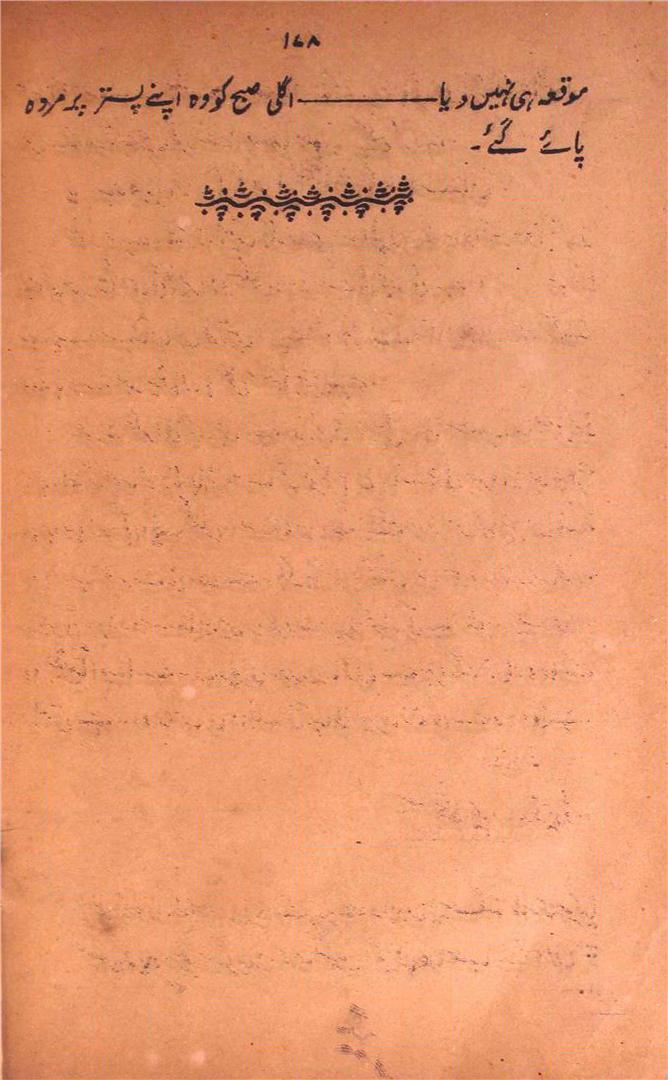 ۱۶۸
موقعہ ہی نہیں دیا ———— اگلی صبح کو وہ اپنے بستر پر مردہ
پائے گئے۔